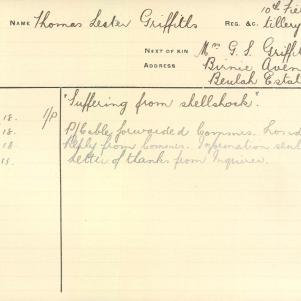 NAME Thomas Lester Griffiths REG. &C. 10th Fie
tillery
NEXT OF KIN Mrs G. S. Griffit
ADDRESS Birnie Aven
Beulah Estat
"Suffering from shellshock".
18. I/P P/Cable forwarded Commrs. Lond
18. Reply from Commrs. Information sent
19. Letter of thanks from Inquirer.